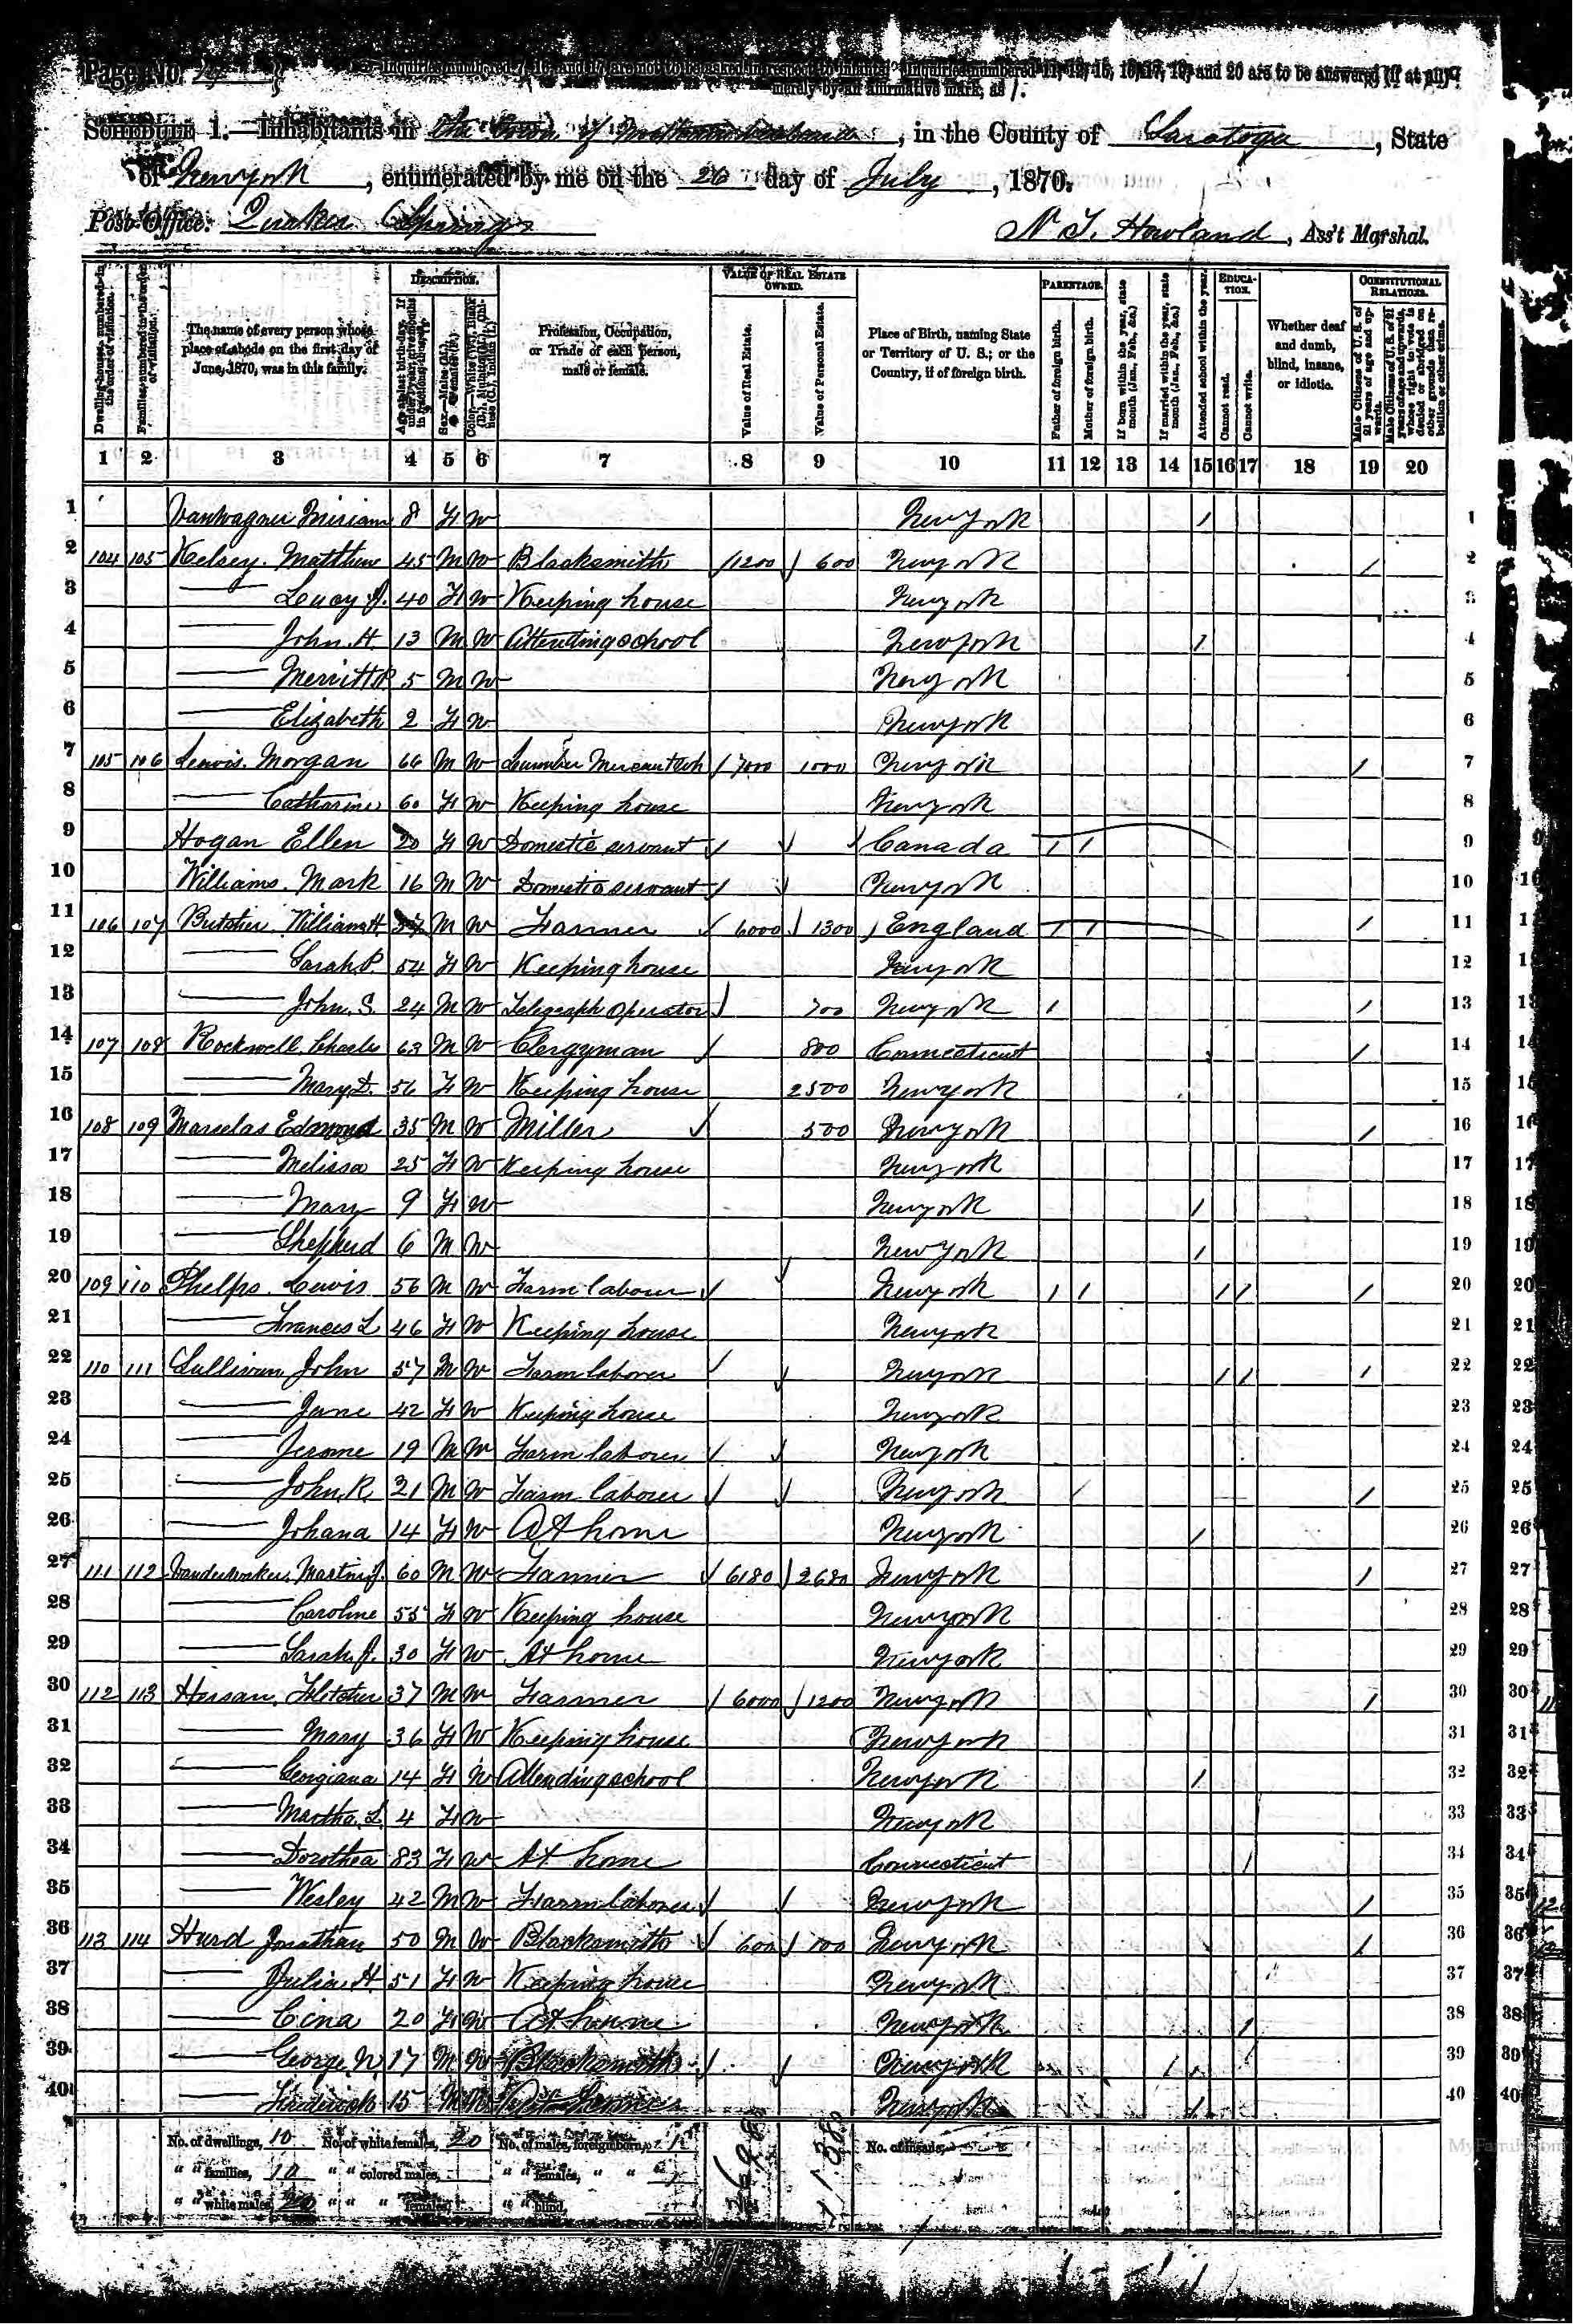 Page No. 14
Inquiries numbered 7, 16, and 17 are not to be asked in respect to infants. Inquiries numbered 11, 12, 15, 16, 17, 19, and 20 are to be answered (if at all)
merely by an affirmative mark, as /.
SCHEDULE 1.—Inhabitants in the Town of , in the County of Saratoga, State
of New York, enumerated by me on the 26 day of July, 1870.
Post Office: Quaker Springs
N T. Howland, Ass't Marshal.
Dwelling-houses, numbered in the order of visitation.
Families, numbered in the order of visitation.
The name of every person whose place of abode on the first day of June, 1870, was in this family.
DESCRIPTION.
Age at last birth-day. If under 1 year, give months in fractions, thus,
Sex.—Males (M.), Females (F.)
Color.—White (W.), Black (B.), Mulatto (M.), Chinese (C.), Indian (I.)
Profession, Occupation, or Trade of each person, male or female.
VALUE OF REAL ESTATE OWNED.
Value of Real Estate.
Value of Personal Estate.
Place of Birth, naming State or Territory of U. S.; or the Country, if of foreign birth.
PARENTAGE.
Father of foreign birth.
Mother of foreign birth.
If born within the year, state month (Jan., Feb., &c.)
If married within the year, state month (Jan., Feb., &c.)
Attended school within the year.
EDUCATION.
Cannot read.
Cannot write.
Whether deaf and dumb, blind, insane, or idiotic.
CONSTITUTIONAL RELATIONS.
Male Citizens of U. S. of 21 years of age and upwards.
Male Citizens of U. S. of 21 years of age and upwards, whose right to vote is denied or abridged on other grounds than rebellion or other crime.
1 2 3 4 5 6 7 8 9 10 11 12 13 14 15 16 17 18 19 20
1 Vanwagner Miriam 8 F W New York / 1
2 104 105 Kelsey. Matthew 45 M W Blacksmith 1200 600 New York / 2
3 — Lucy J. 40 F W Keeping house New York 3
4 — John. H. 13 M W Attending school New York / 4
5 — Merritt 5 M W New York 5
6 — Elizabeth 2 F W New York 6
7 105 106 Lewis. Morgan 66 M W Lumber Mercantile 7000 1000 New York / 7
8 — Catharine 60 F W Keeping house New York 8
9 Hogan Ellen 20 F W Domestic servant Canada / / 9
10 Williams. Mark 16 M W Domestic servant New York 10
11 106 107 Butcher William H. 57 M W Farmer 6000 1300 England / / / 11
12 — Sarah P. 54 F W Keeping house New York 12
13 — John. S. 24 M W Telegraph Operator 700 New York / / 13
14 107 108 Rockwell. Charles 63 M W Clergyman 800 Connecticut / 14
15 — Mary D. 56 F W Keeping house 2500 New York 15
16 108 109 Marselas Edmond 35 M W Miller 500 New York / 16
17 — Melissa 25 F W Keeping house New York 17
18 — Mary 9 F W New York / 18
19 — Shepherd 6 M W New York / 19
20 109 110 Phelps. Lewis 56 M W Farm labourer New York / / / / / 20
21 — Frances L 46 F W Keeping house New York 21
22 110 111 Sullivan John 57 M W Farm laborer New York / / / 22
23 — Jane 42 F W Keeping house New York 23
24 — Jerome 19 M W Farm laborer New York 24
25 — John. R. 21 M W Farm laborer New York / 25
26 — Johana 14 F W At home New York / 26
27 111 112 Vanderwerker. Martin J. 60 M W Farmer 6180 2680 New York / 27
28 — Caroline 55 F W Keeping house New York 28
29 — Sarah J. 30 F W At home New York 29
30 112 113 Fletcher 37 M W Farmer 6000 1200 New York / 30
31 — Mary 36 F W Keeping house New York 31
32 — Georgiana 14 F W Attending school New York / 32
33 — Martha. L. 4 F W New York 33
34 — Dorothea 83 F W At home Connecticut / 34
35 — Wesley 42 M W Farm laborer New York / 35
36 113 114 Hurd Jonathan 50 M W Blacksmith 600 100 New York / 36
37 — Julia H. 51 F W Keeping house New York 37
38 — Cina 20 F W At home New York / 38
39 — George W. 17 M W Blacksmith New York / 39
40 — Frederick 15 M W At home New York / 40
No. of dwellings, 10 No. of white females, 20 No. of males, foreign born, 1 No. of insane,
" " families, 10 " " colored males, " " females, " " 1
" " white males, 20 " " " females, " " blind,